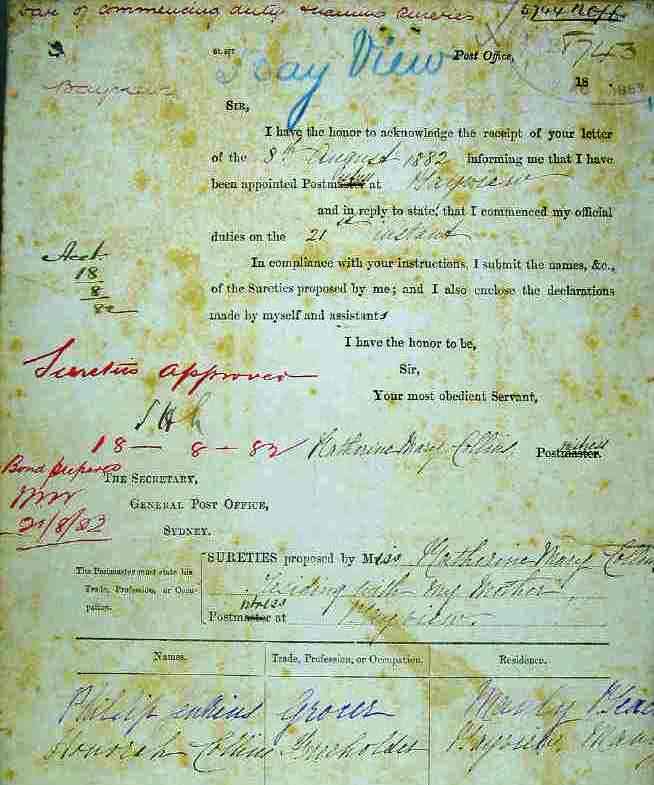 Date of commencing duty & naming sureties
8743
Bay View
Post Office,
Bayview
18
SIR,
I have the honor to acknowledge the receipt of your letter
of the 8th August 1882 informing me that I have
been appointed Postmaster at Bayview
and in reply to state, that I commenced my official
duties on the 21 instant
Ackd
18
8
82
In compliance with your instructions, I submit the names, &c.,
of the Sureties proposed by me; and I also enclose the declarations
made by myself and assistants
I have the honor to be,
Sir,
Your most obedient Servant,
Sureties approved
18 - 8 - 82
Katherine Mary Collins Postmaster.
mistress
Bond prepared
THE SECRETARY,
GENERAL POST OFFICE,
SYDNEY.
21/8/82
SURETIES proposed by Miss Katherine Mary Collins
The Postmaster must state his
Trade, Profession, or Occu-
pation.
Residing with my Mother
Postmaster at Bayview.
mistress
Names. Trade, Profession, or Occupation. Residence.
Philip Grocer Manly
Honorah Collins Freeholder Bayview